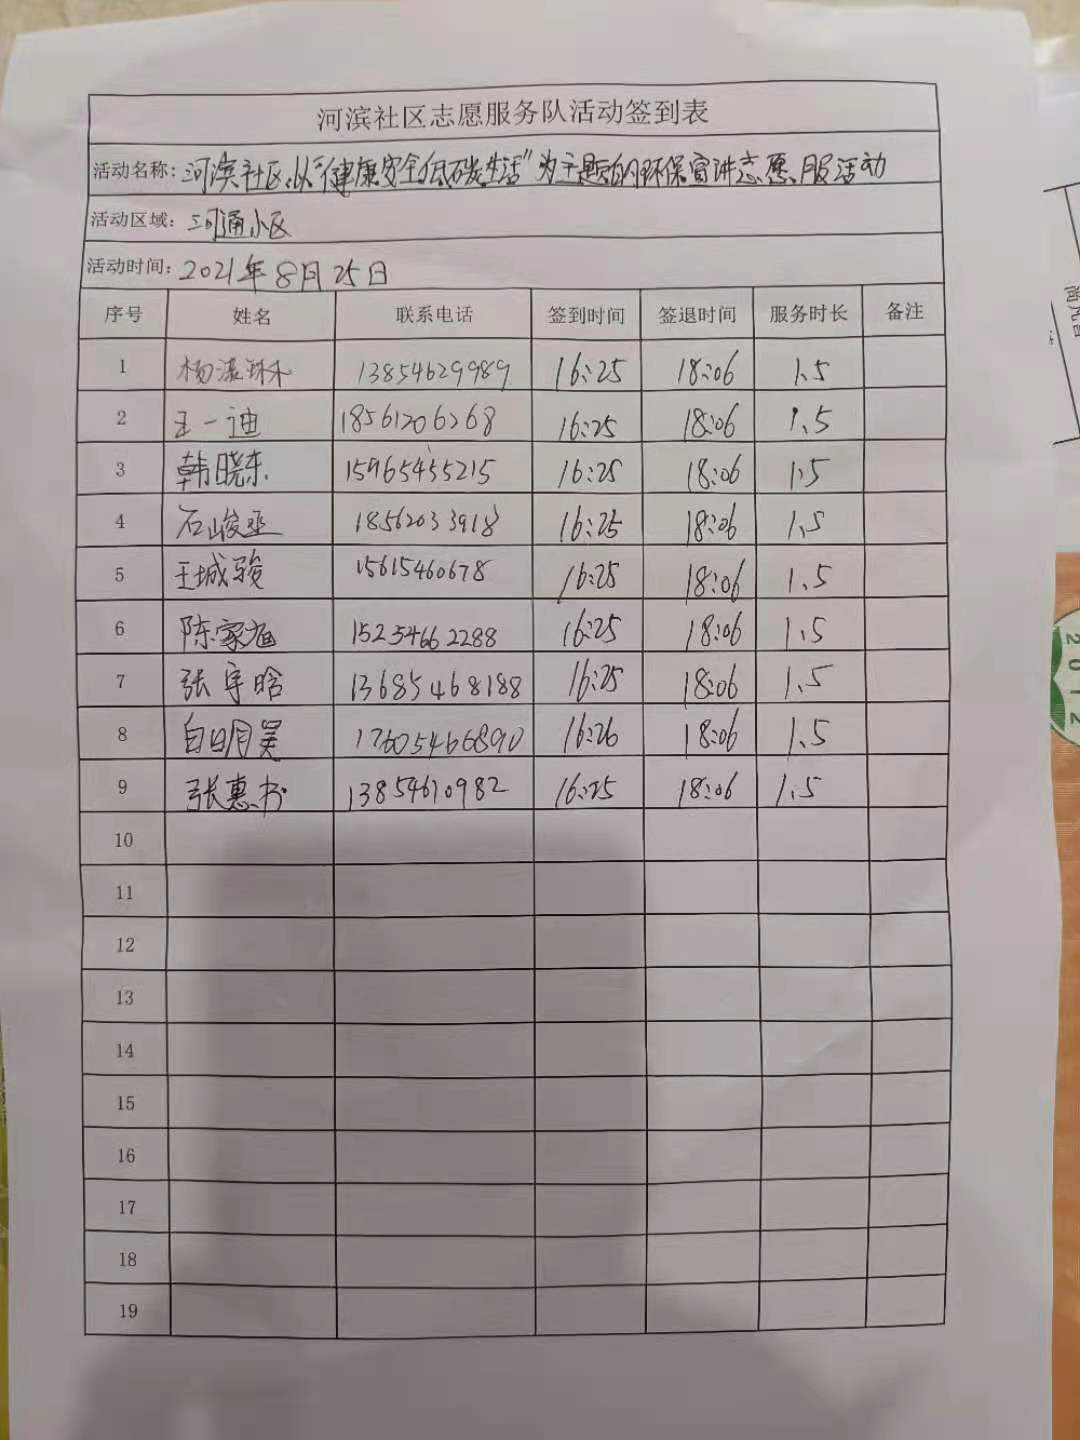 河滨社区志愿服务队活动签到表
活动名称：河滨社区以"健康安全低碳生活"为主题的环保宣讲志愿服活动
活动区域：河通小区
活动时间：2021年8月25日
序号 姓名 联系电话 签到时间 签退时间 服务时长 备注
1 杨潇琳 13854629989 16:25 18:06 1.5
2 王一迪 18561206268 16:25 18:06 1.5
3 韩晓东 15965455215 16:25 18:06 1.5
4 石峻丞 18562033918 16:25 18:06 1.5
5 王城骏 15615460678 16:25 18:06 1.5
6 陈家 15254662288 16:25 18:06 1.5
7 张宇晗 13685468188 16:25 18:06 1.5
8 白明昊 17605466890 16:26 18:06 1.5
9 张惠书 13854610982 16:25 18:06 1.5
10
11
12
13
14
15
16
17
18
19
2012